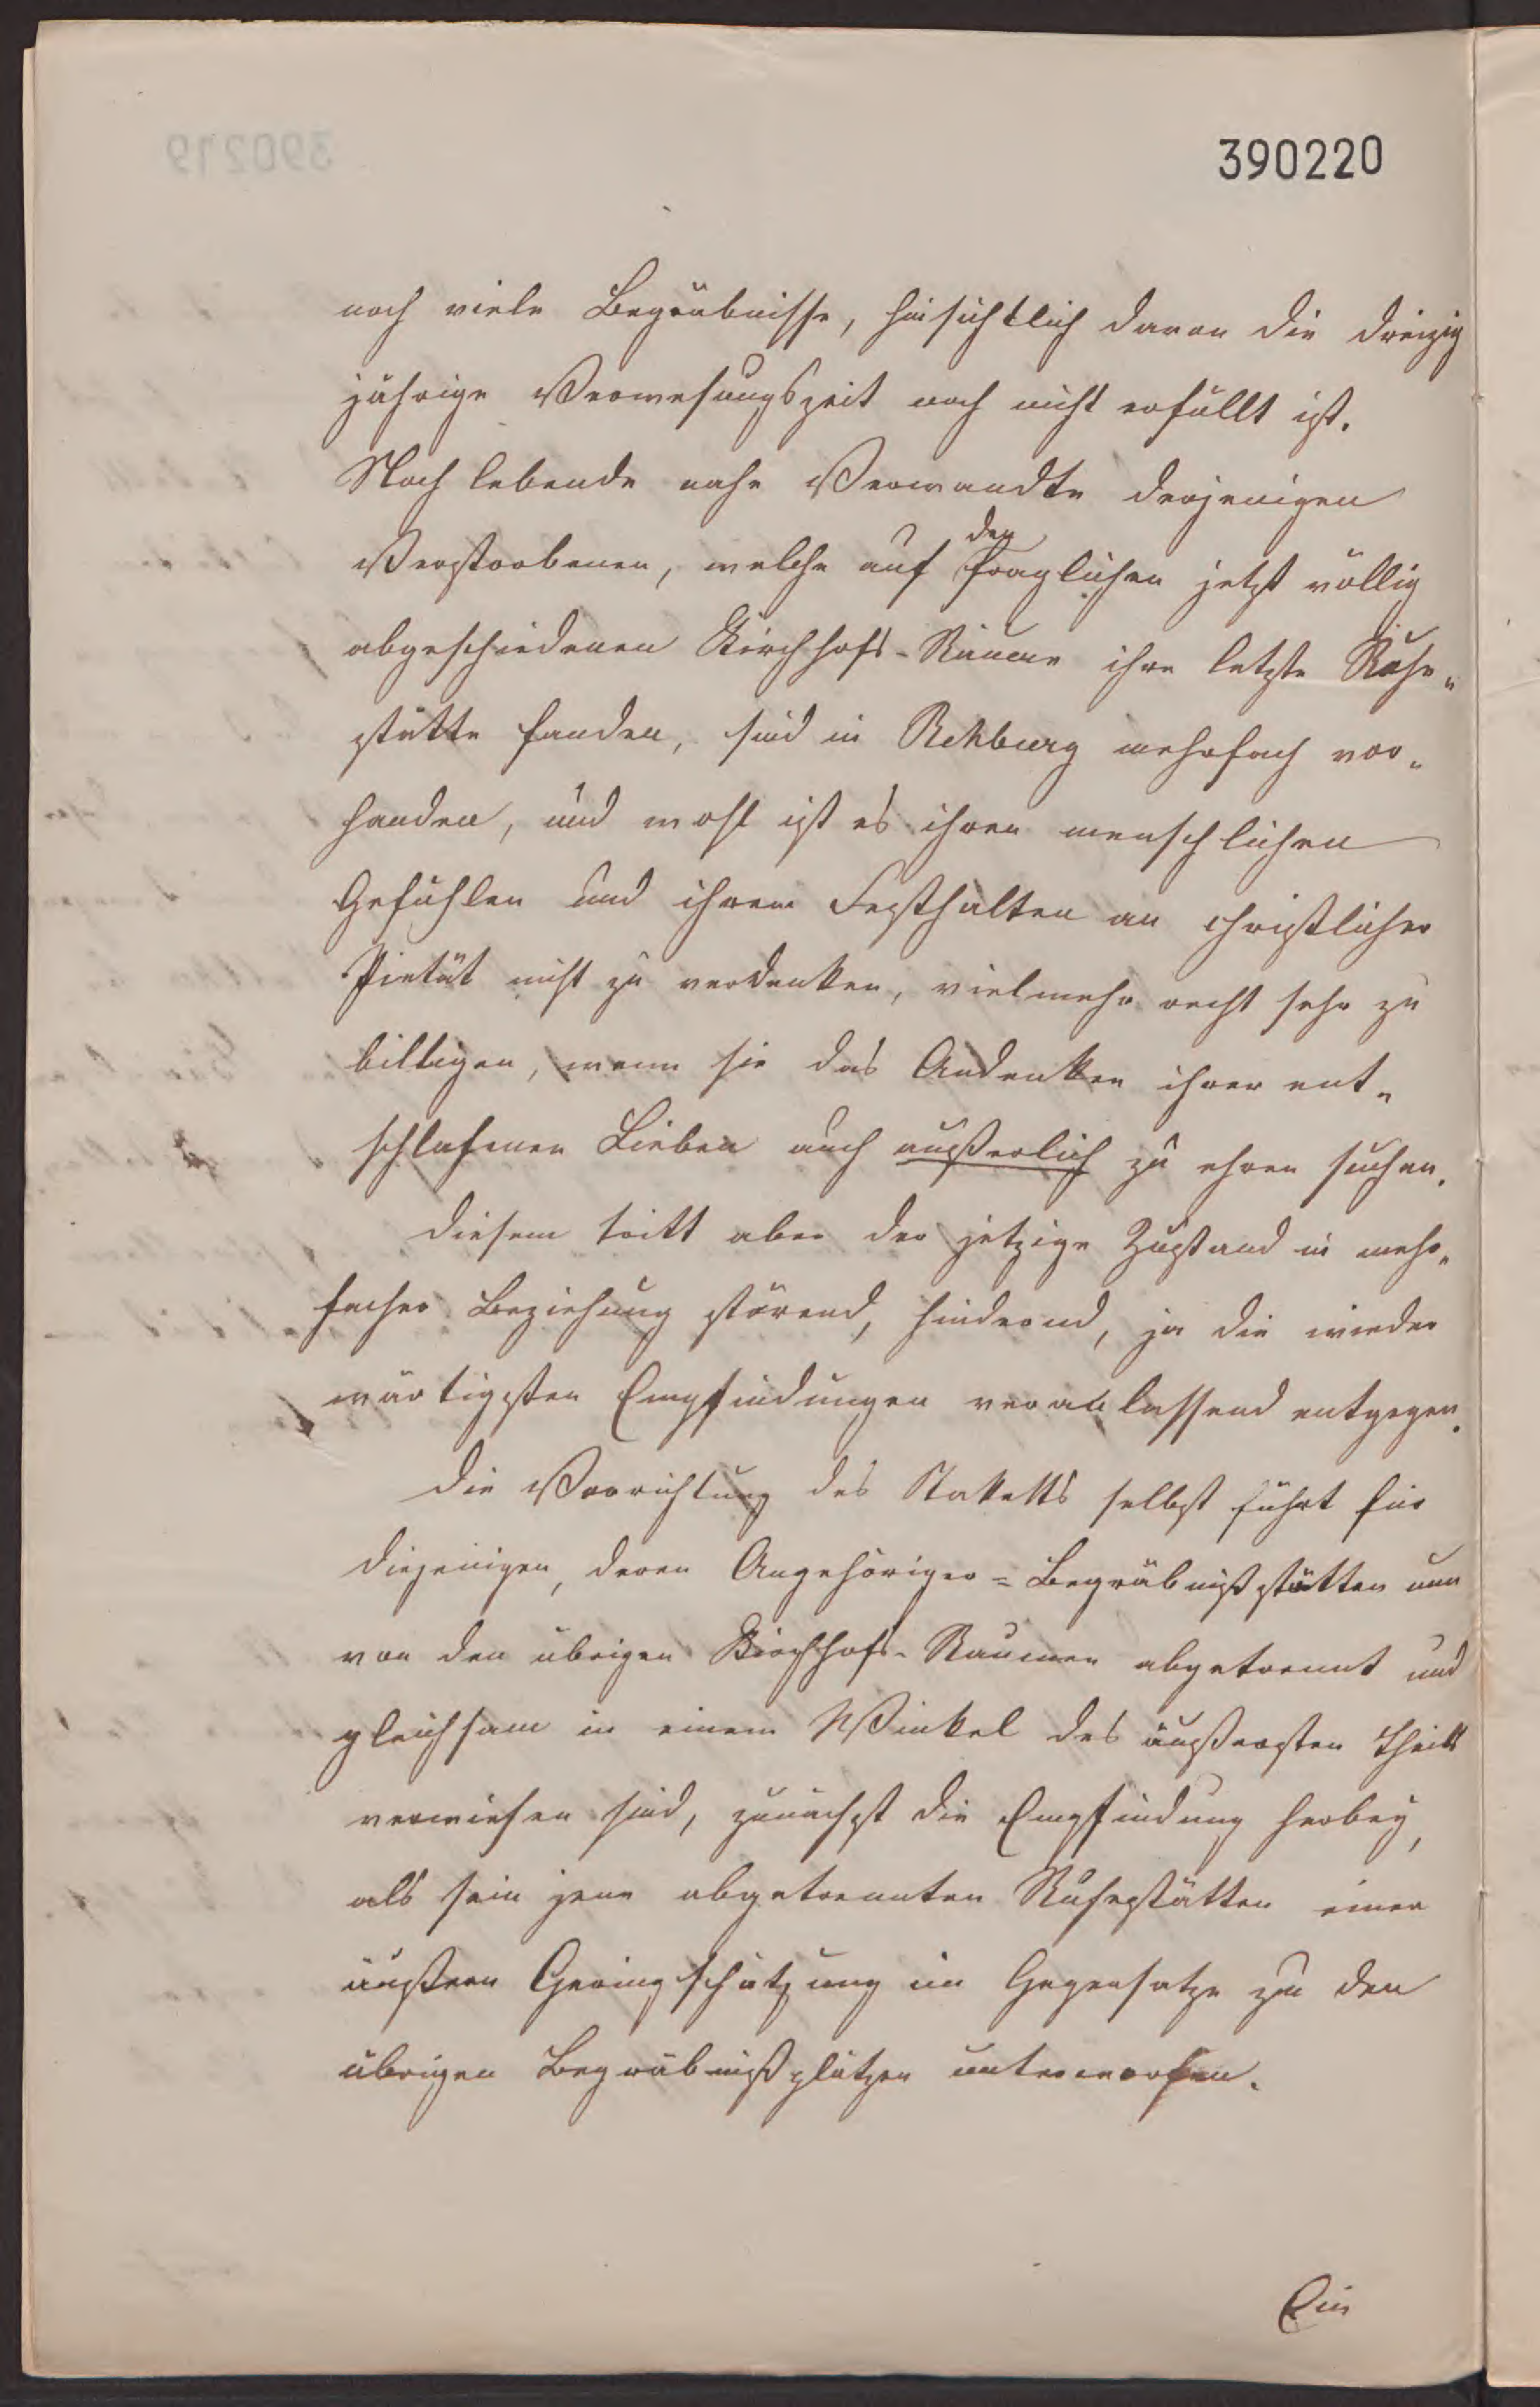 390220
noch viele Begräbnisse, hinsichtlich deren die dreizig
jährige Verwesungszeit noch nicht erfüllt ist.
Noch lebende nahe Verwandte derjenigen
den
Verstorbenen, welche auf fraglichen jetzt völlig
abgeschiedenen Kirchhofs-Räume ihre letzte Ruhe-
stätte fanden, sind in Rehburg mehrfach vor-
handen, und wohl ist es ihren menschlichen
Gefühlen und ihrem Festhalten an christlicher
Pietät nicht zu verdenken, vielmehr recht sehr zu
billigen, wenn sie das Andenken ihrer ent-
schlafenen Lieben auch äußerlich zu ehren suchen.
Diesem tritt aber der jetzige Zustand in mehr-
facher Beziehung störend, hindernd, ja die wieder
wärtigsten Empfindungen veranlassend entgegen.
Die Vorrichtung des Staketts selbst führt für
diejenigen, deren Angehöriger-Begräbnißstätten nun
von den übrigen Kirchhofs-Räumen abgetrennt und
gleichsam in einem Winkel des äußersten Theils
verwiesen sind, zunächst die Empfindung herbey,
als sein jene abgetrennten Ruhestätten einer
äußern Geringschätzung im Gegensatze zu den
übrigen Begräbnißplätzen unterworfen.
Ein